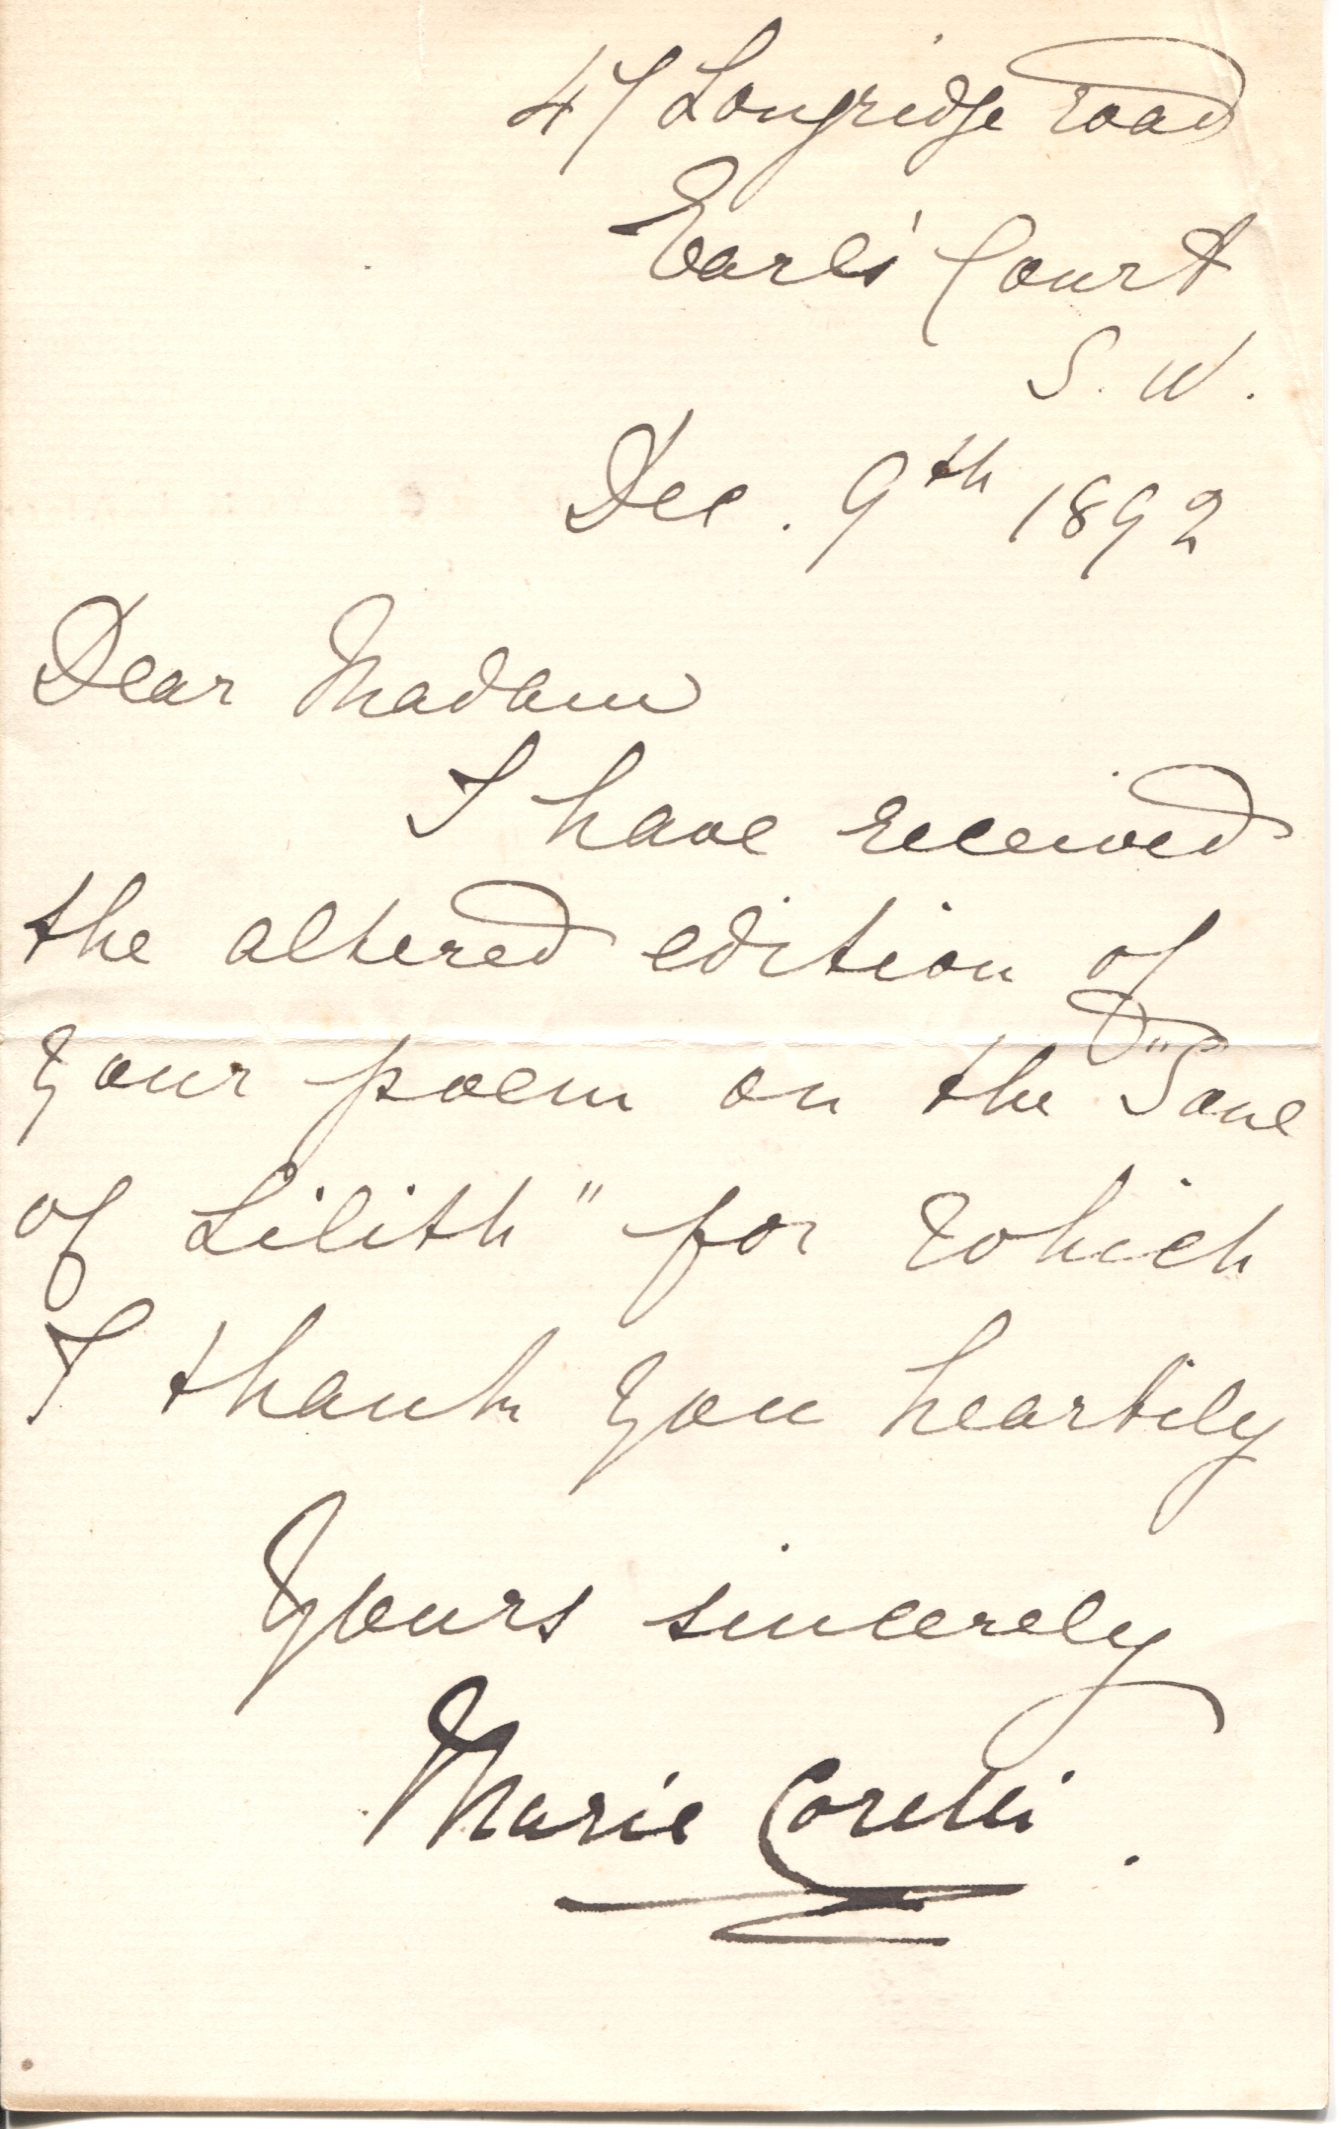 47 Longridge Road
Earls' Court
S. W.
Dec. 9th 1892
Dear Madam
I have received
the altered edition of
your poem on the "Soul
of Lilith" for which
I thank you heartily
Yours sincerely
Marie Corelli.